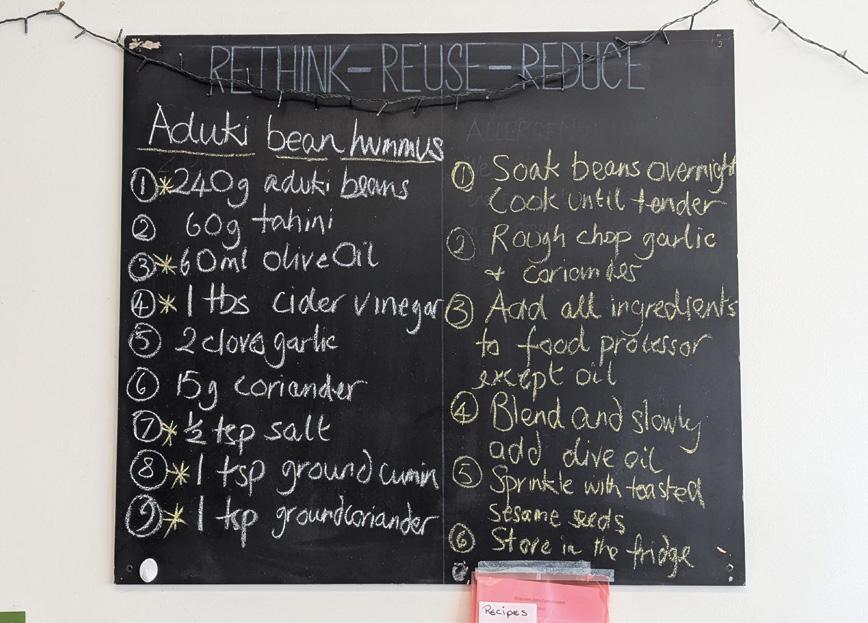 RETHINK-REUSE-REDUCE
Aduki bean hummus
① *240g aduki beans
② 60g tahini
③ *60ml olive Oil
④ * 1 tbs cider vinegar
⑤ 2 clove garlic
⑥ 15g coriander
⑦ * ½ tsp salt
⑧ * 1 tsp ground cumin
⑨ * 1 tsp ground coriander
ALLERGENS
① Soak beans overnight
Cook until tender
② Rough chop garlic
+ coriander
③ Add all ingredients
to food processor
except oil
④ Blend and slowly
add olive oil
⑤ Sprinkle with toasted
sesame seeds
⑥ Store in the fridge
Recipes